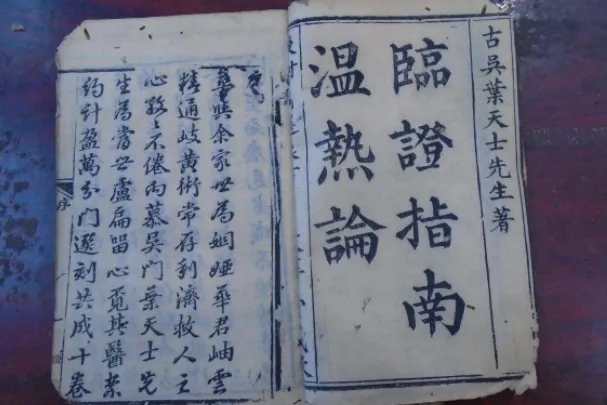 古吳葉天士先生著
臨證指南
温熱論
序
華與余家世為姻婭華君岫雲
精通岐黃術常存利濟救人之
心孜孜不倦而慕吳門葉天士先
生為當世盧扁留心覓其醫案
約計盈萬分門選刻共成十卷
序